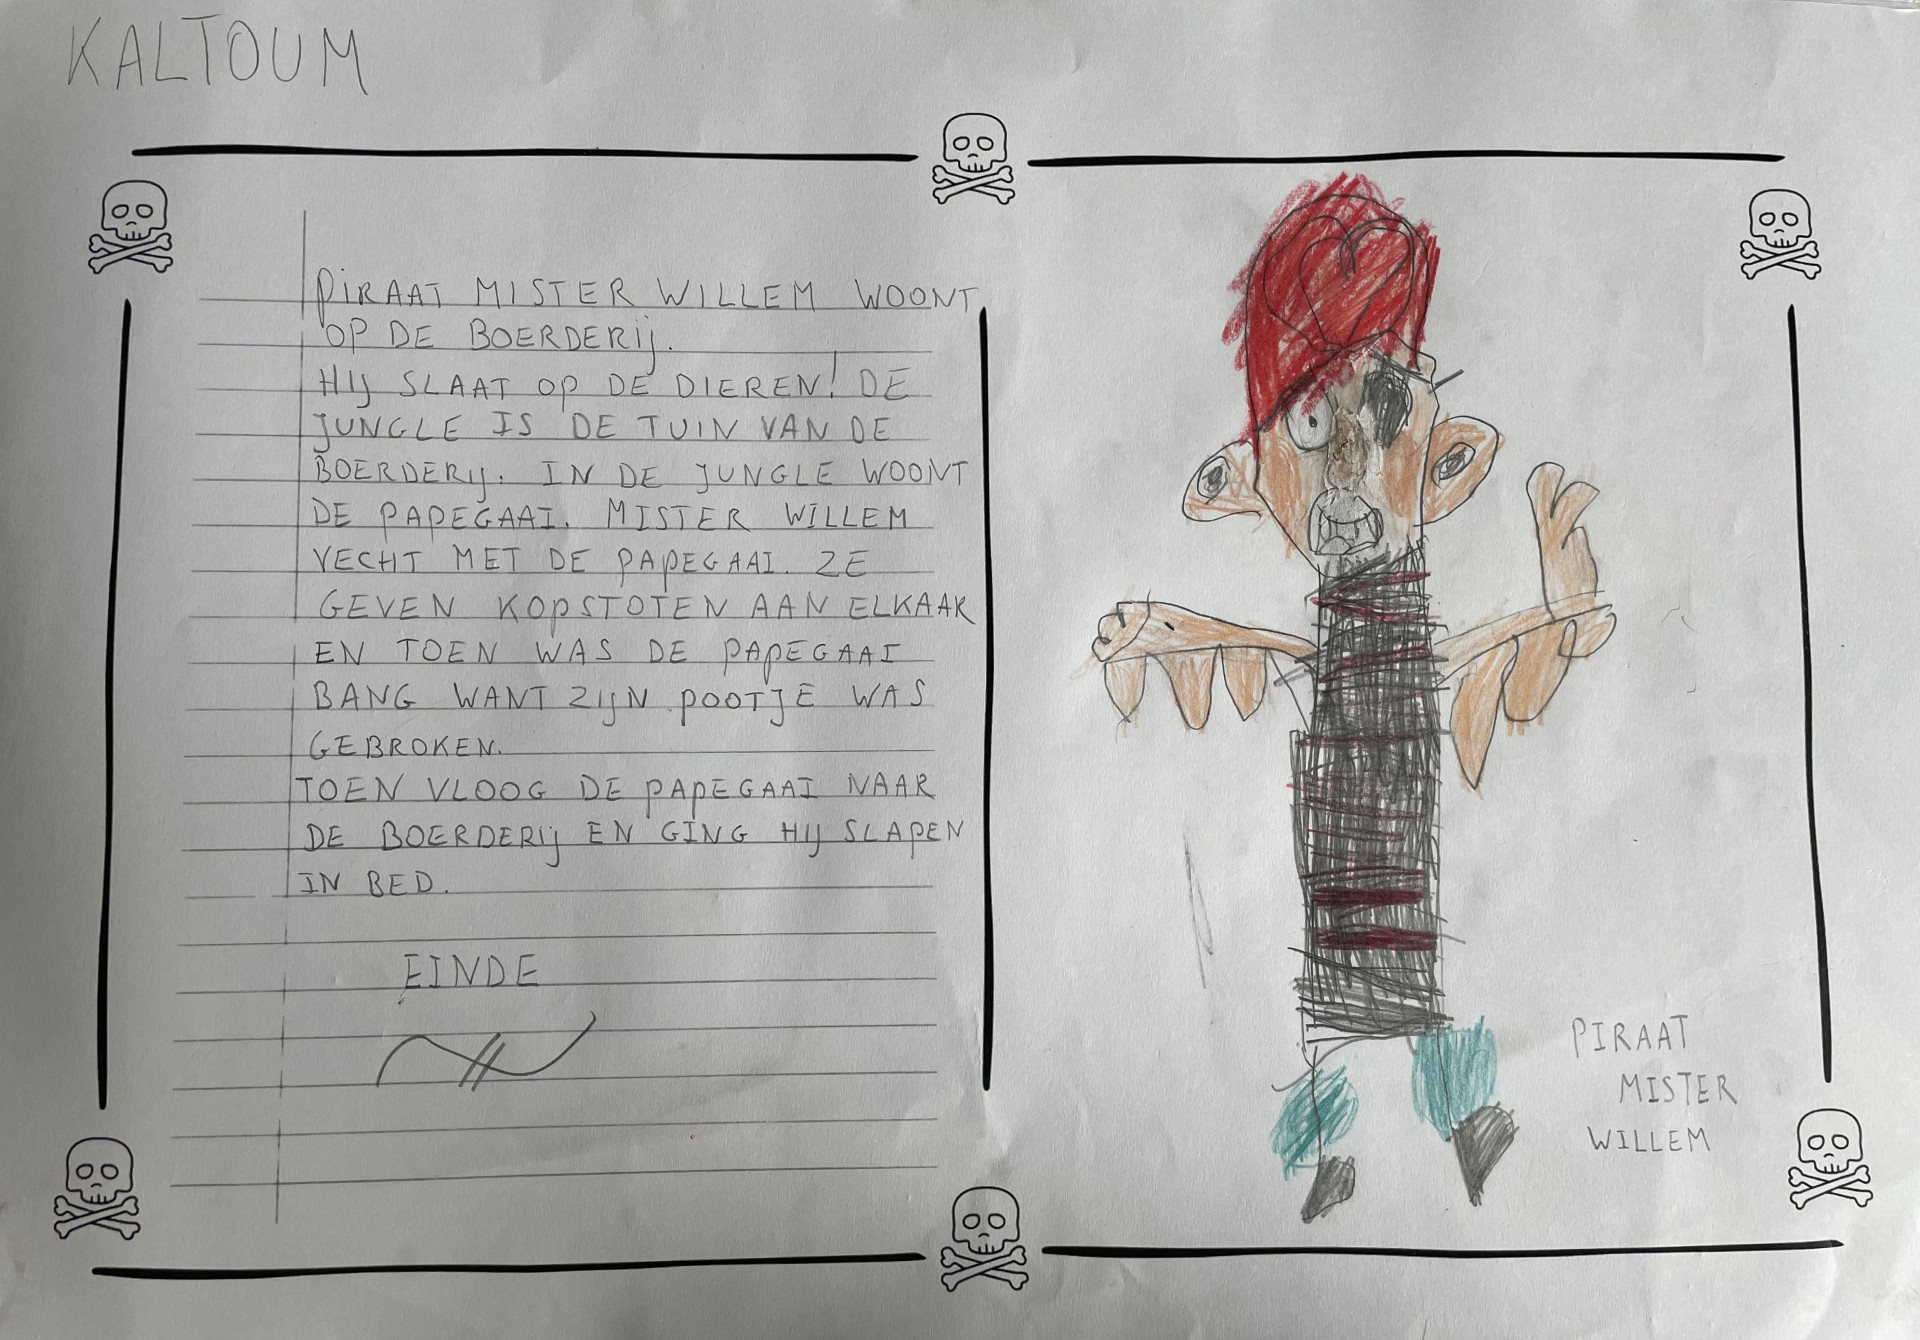 KALTOUM
PIRAAT MISTER WILLEM WOONT
OP DE BOERDERIJ.
HIJ SLAAT OP DE DIEREN! DE
JUNGLE IS DE TUIN VAN DE
BOERDERIJ. IN DE JUNGLE WOONT
DE PAPEGAAI. MISTER WILLEM
VECHT MET DE PAPEGAAI. ZE
GEVEN KOPSTOTEN AAN ELKAAR
EN TOEN WAS DE PAPEGAAI
BANG WANT ZIJN POOTJE WAS
GEBROKEN.
TOEN VLOOG DE PAPEGAAI NAAR
DE BOERDERIJ EN GING HIJ SLAPEN
IN BED.
EINDE
PIRAAT
MISTER
WILLEM